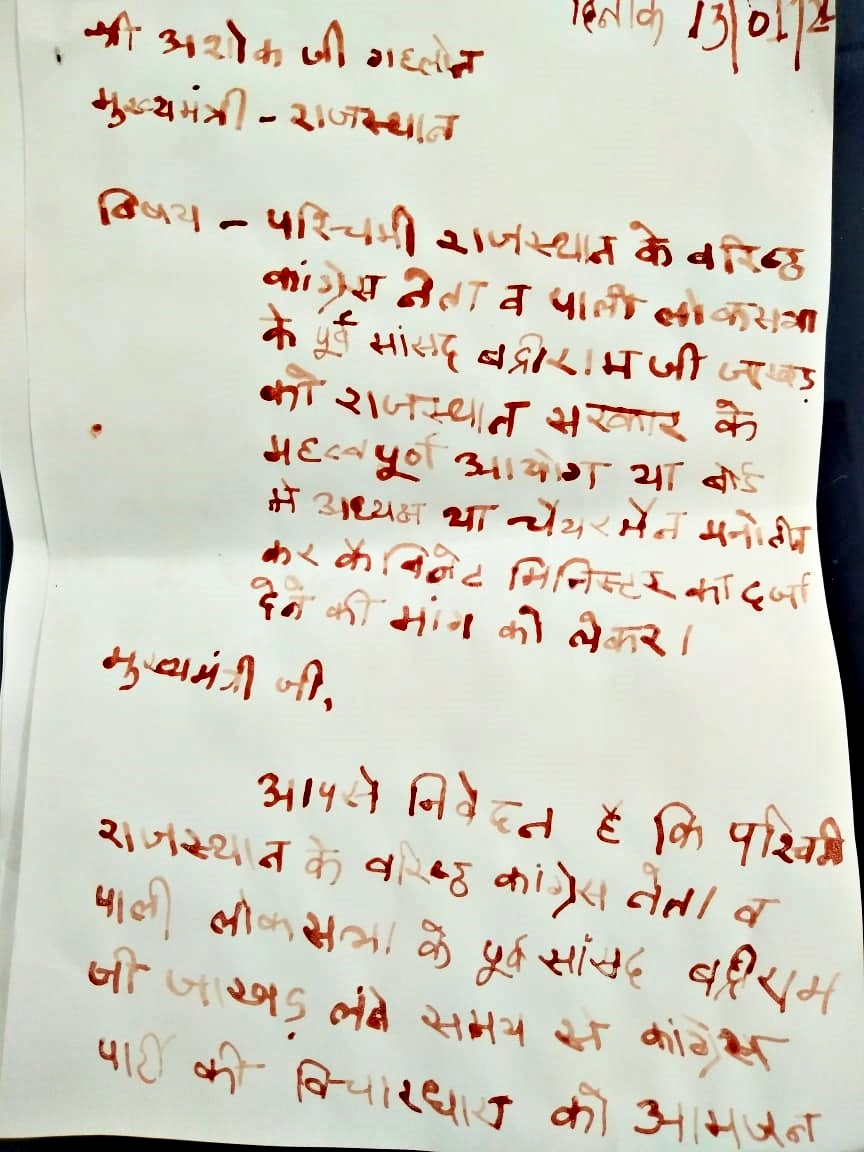 दिनांक 13/01/2
श्री अशोक जी गहलोत
मुख्यमंत्री - राजस्थान
विषय - पश्चिमी राजस्थान के वरिष्ठ
कांग्रेस नेता व पाली लोकसभा
के पूर्व सांसद बद्रीराम जी जाखड़
को राजस्थान सरकार के
महत्वपूर्ण आयोग या बोर्ड
में अध्यक्ष या चेयरमेन मनोनीत
कर केबिनेट मिनिस्टर का दर्जा
देने की मांग को लेकर।
मुख्यमंत्री जी,
आपसे निवेदन है कि पश्चिमी
राजस्थान के वरिष्ठ कांग्रेस नेता व
पाली लोकसभा के पूर्व सांसद बद्रीराम
जी जाखड़ लंबे समय से कांग्रेस
पार्टी की विचारधारा को आमजन